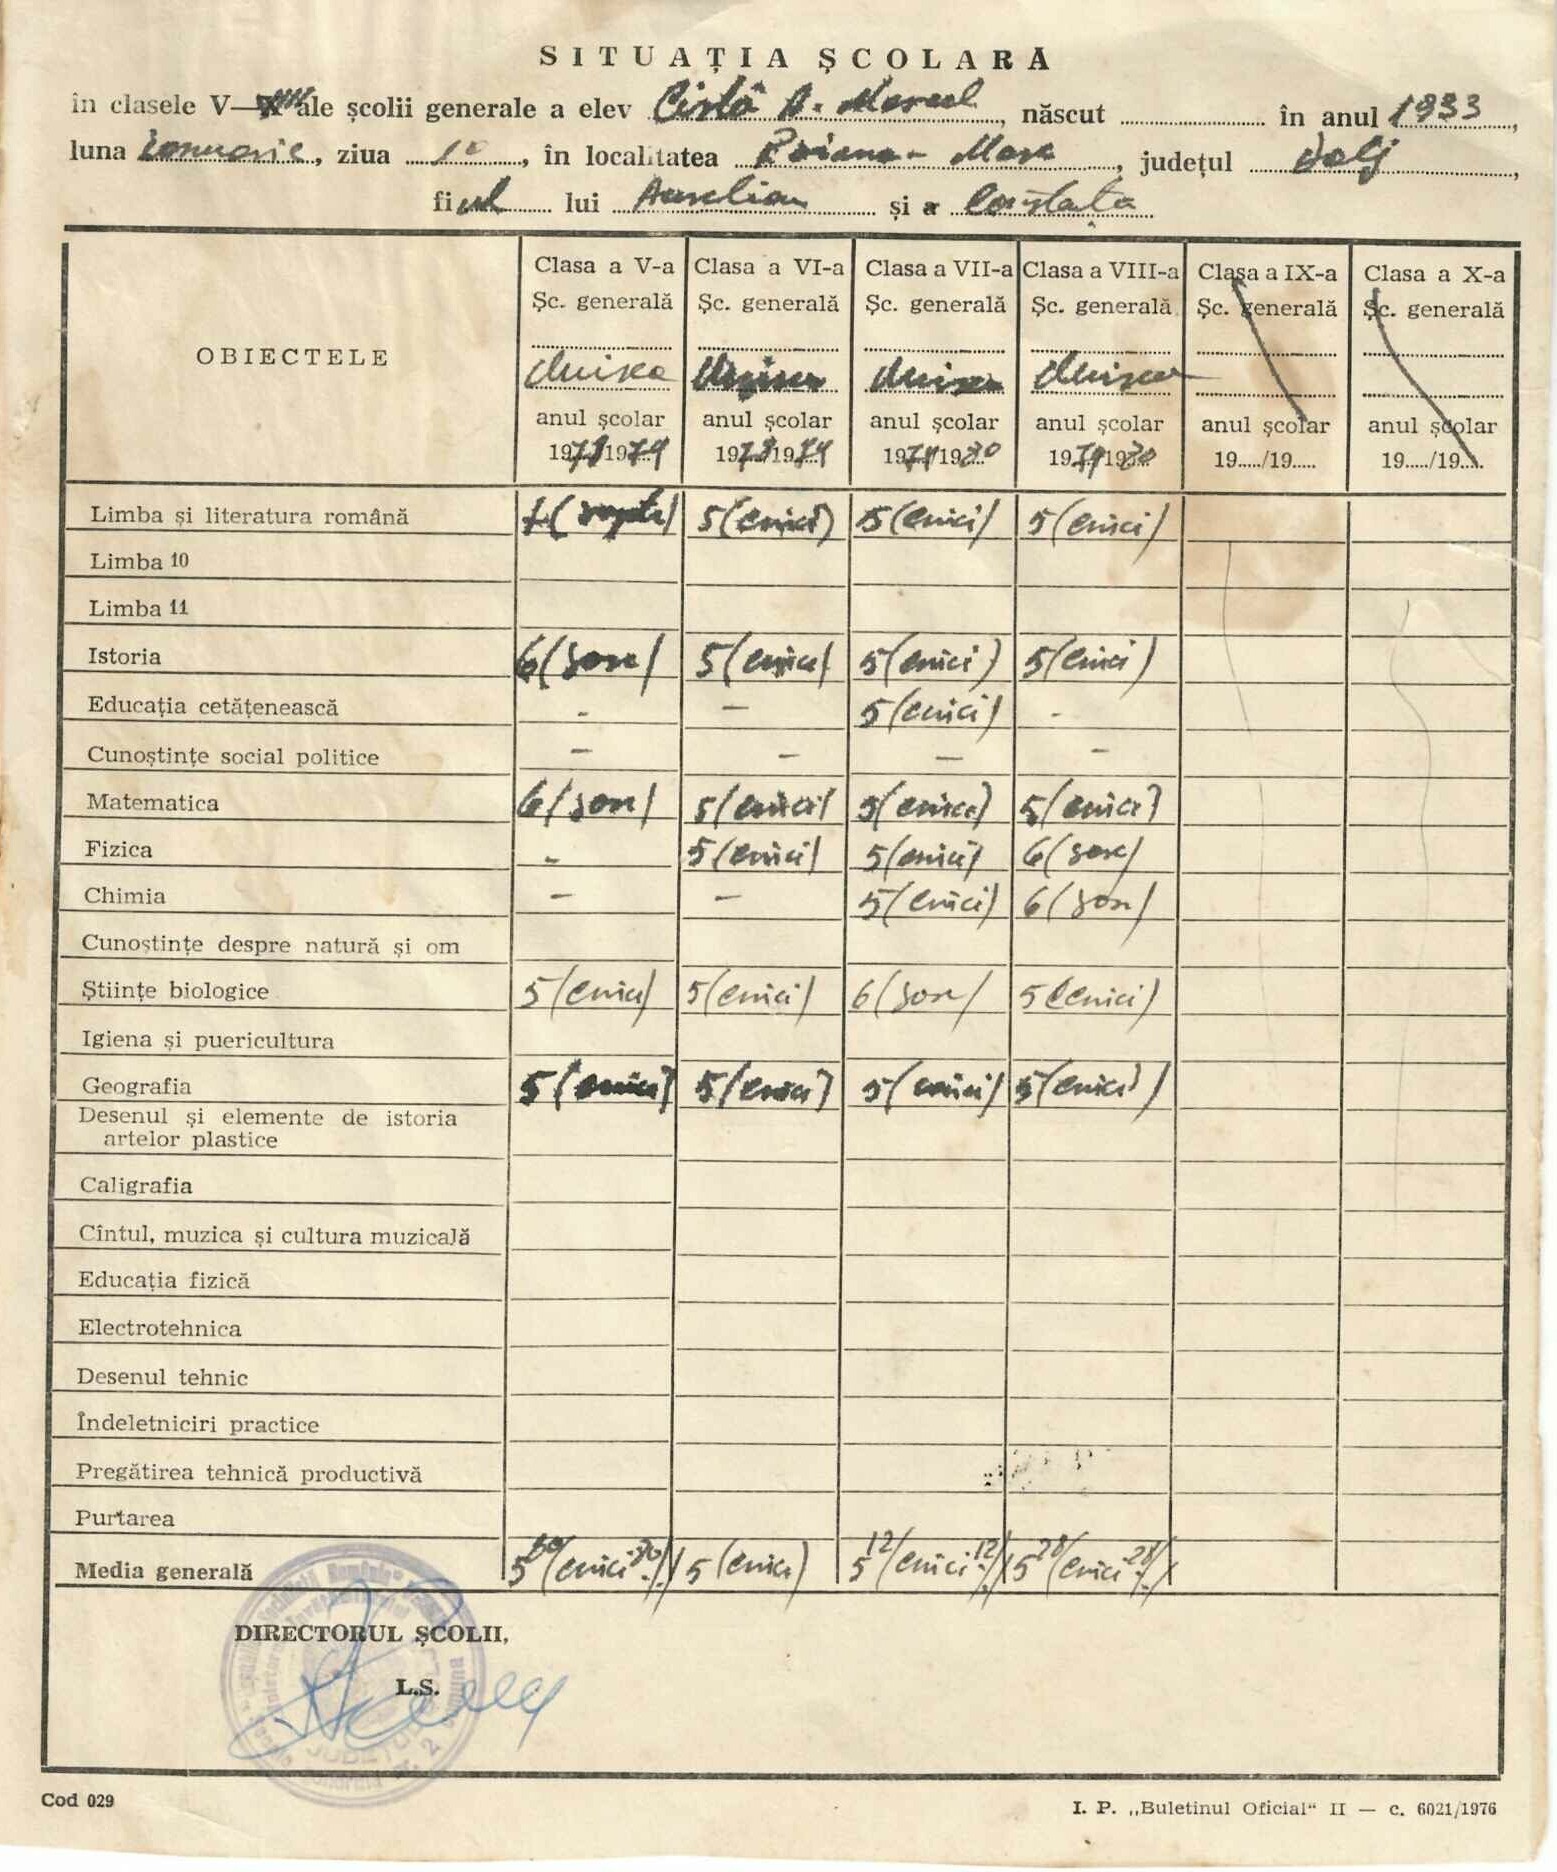 SITUAȚIA ȘCOLARĂ
în clasele V—VIII ale școlii generale a elev Cîrlă A. Marcel, născut ............ în anul 1933,
luna Ianuarie, ziua 10, în localitatea Poiana-Mare, județul Dolj,
fiul lui Aurelian și a Constața
OBIECTELE Clasa a V-a Clasa a VI-a Clasa a VII-a Clasa a VIII-a Clasa a IX-a Clasa a X-a
Șc. generală Șc. generală Șc. generală Șc. generală Șc. generală Șc. generală
anul școlar anul școlar anul școlar anul școlar anul școlar anul școlar
1978/1979 1978/1979 1979/1980 1979/1980 19...../19..... 19...../19.....
Limba și literatura română 7(șapte) 5(cinci) 5(cinci) 5(cinci)
Limba 10
Limba 11
Istoria 6(șase) 5(cinci) 5(cinci) 5(cinci)
Educația cetățenească - - 5(cinci) -
Cunoștințe social politice - - - -
Matematica 6(șase) 5(cinci) 5(cinci) 5(cinci)
Fizica - 5(cinci) 5(cinci) 6(șase)
Chimia - - 5(cinci) 6(șase)
Cunoștințe despre natură și om
Științe biologice 5(cinci) 5(cinci) 6(șase) 5(cinci)
Igiena și puericultura
Geografia 5(cinci) 5(cinci) 5(cinci) 5(cinci)
Desenul și elemente de istoria
artelor plastice
Caligrafia
Cîntul, muzica și cultura muzicală
Educația fizică
Electrotehnica
Desenul tehnic
Îndeletniciri practice
Pregătirea tehnică productivă
Purtarea
Media generală 5 (cinci) 5 (cinci) 5 12 (cinci 12) 5 28 (cinci 28)
DIRECTORUL ȘCOLII,
L.S.
JUDEȚUL
Cod 029
I. P. „Buletinul Oficial“ II — c. 6021/1976